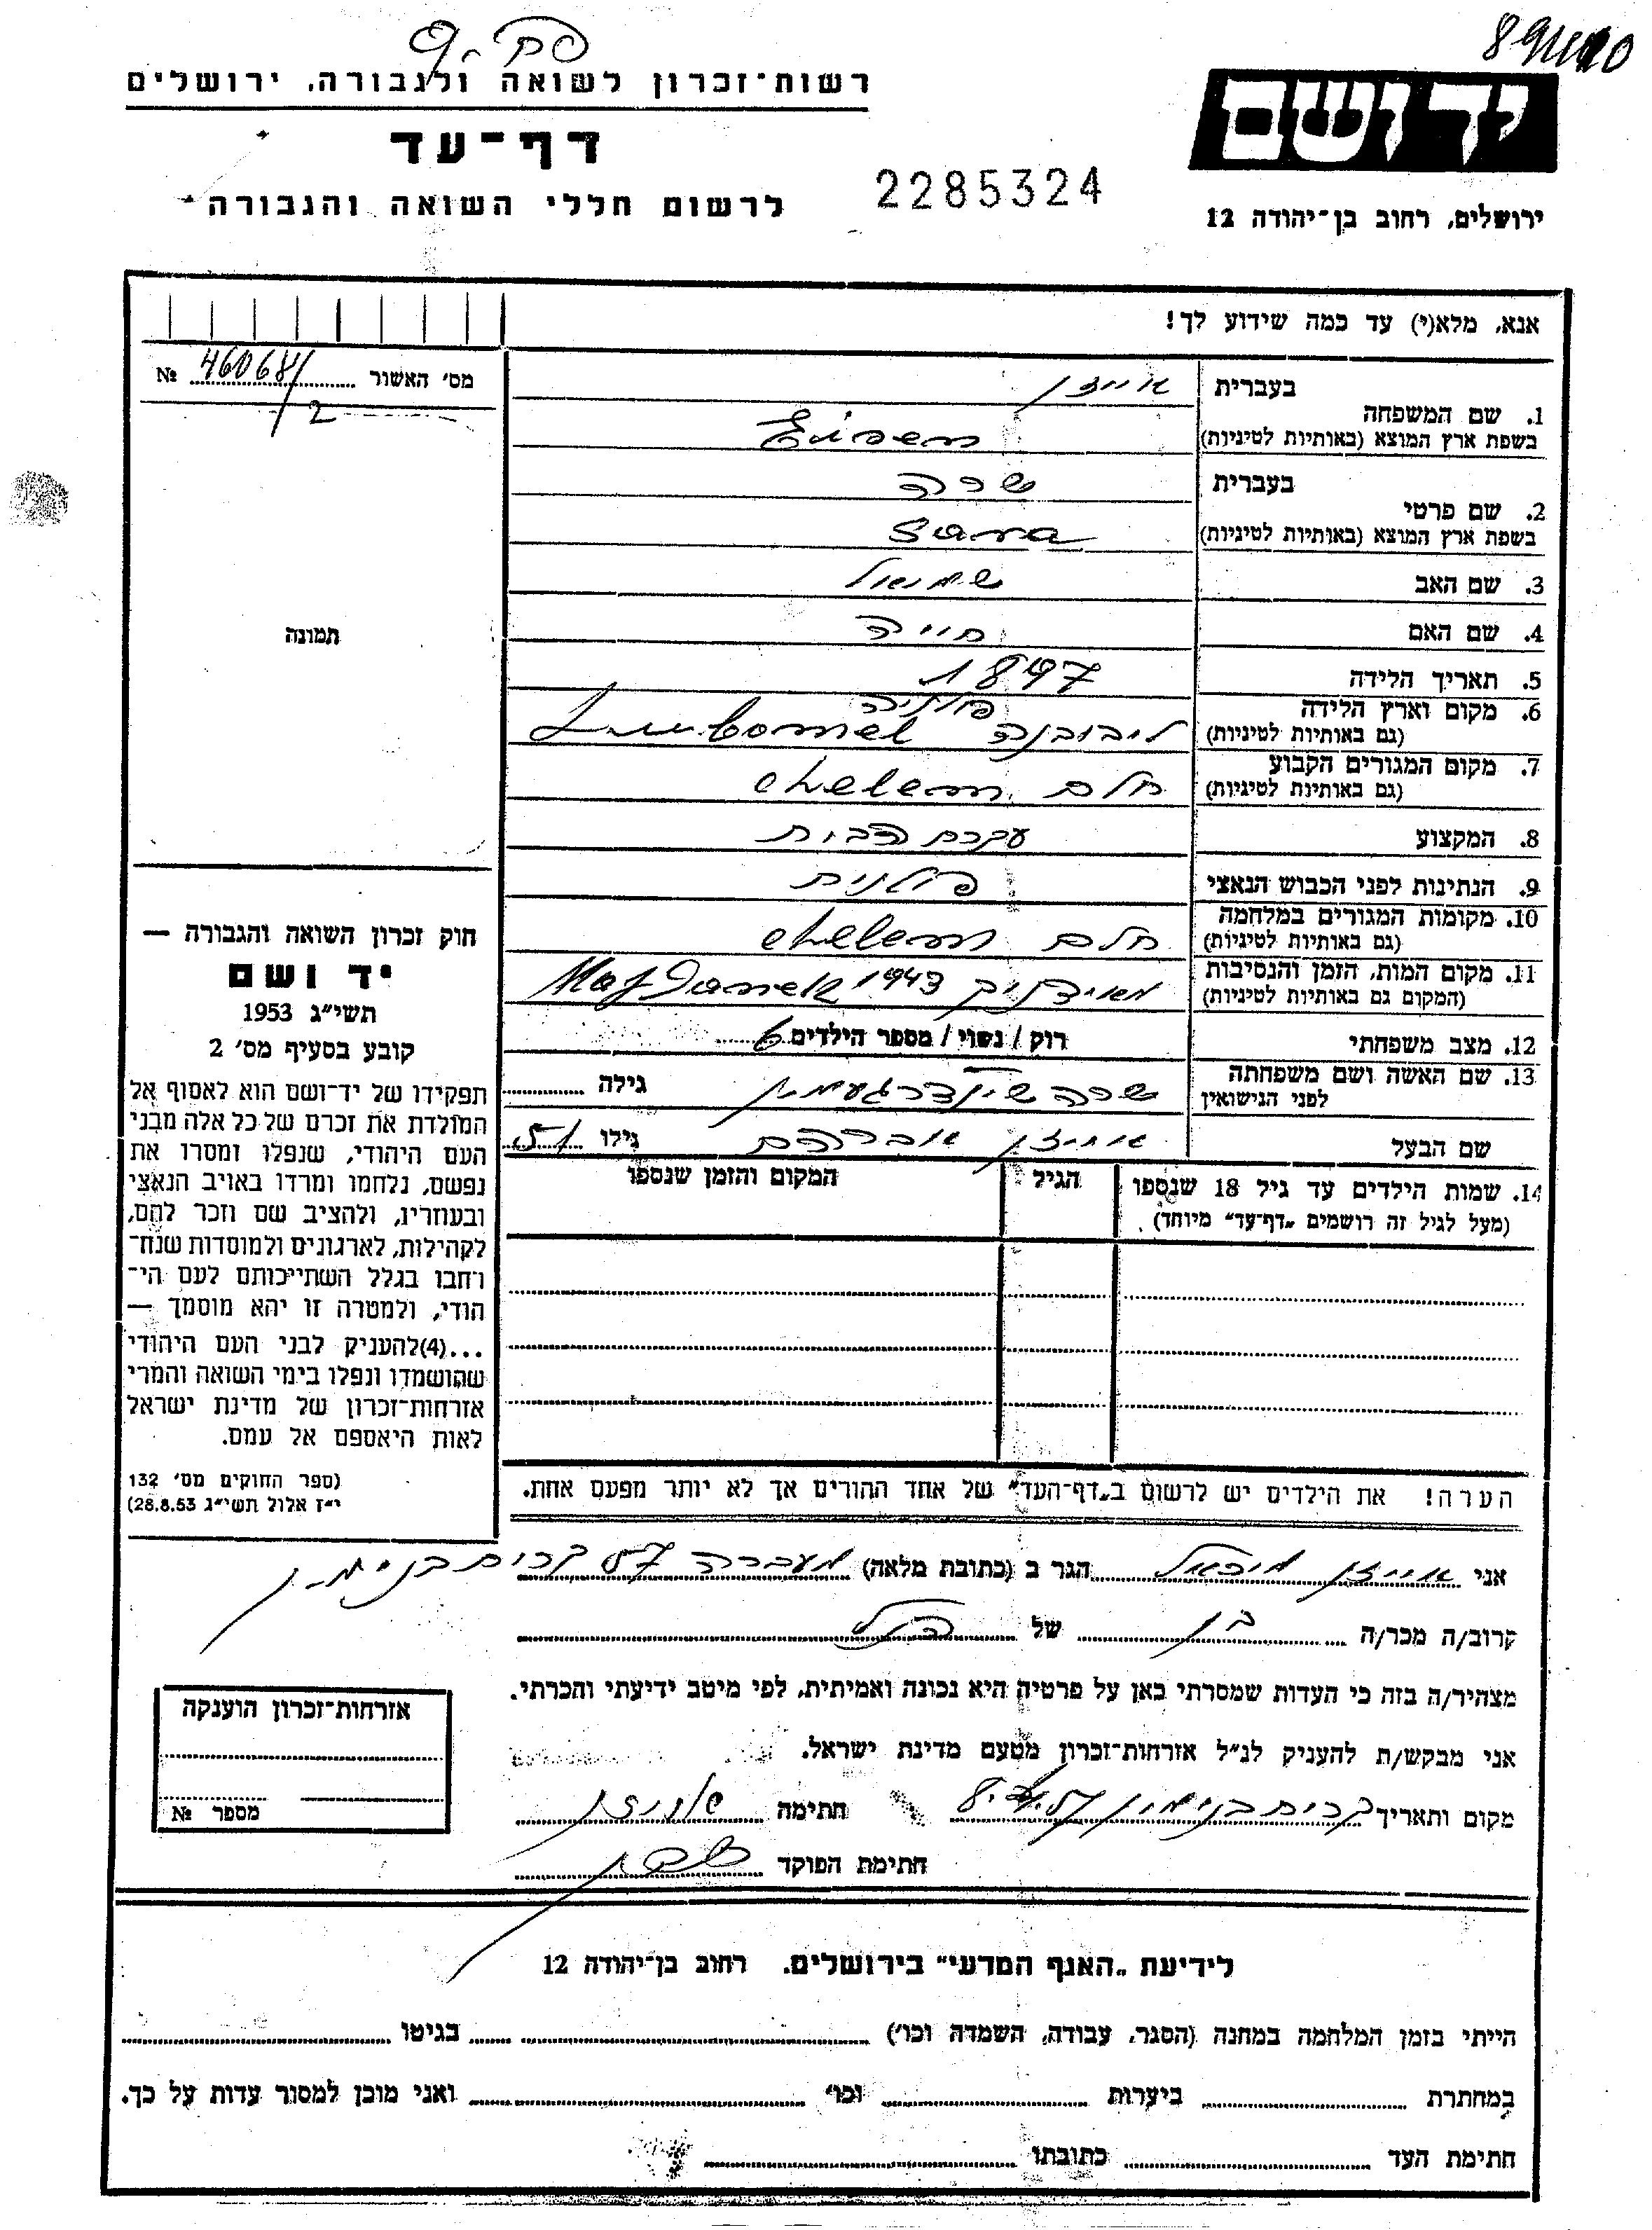 רשות־זכרון לשואה ולגבורה, ירושלים
דף־עד
לרשום חללי השואה והגבורה
2285324
יד ושם
ירושלים, רחוב בן־יהודה 12
אנא, מלא(י) עד כמה שידוע לך!
מס' האשור 460681/2 №
תמונה
1. שם המשפחה
בעברית אייזן
בשפת ארץ המוצא (באותיות לטיניות) Eisen
2. שם פרטי
בעברית שרה
בשפת ארץ המוצא (באותיות לטיניות) Sara
3. שם האב שמואל
4. שם האם חייה
5. תאריך הלידה 1897
6. מקום וארץ הלידה פולניה
(גם באותיות לטיניות) ליבובנה Luboml
7. מקום המגורים הקבוע
(גם באותיות לטיניות) חלם chelem
8. המקצוע עקרת הבית
9. הנתינות לפני הכבוש הנאצי פולנית
10. מקומות המגורים במלחמה
(גם באותיות לטיניות) חלם chelem
11. מקום המות, הזמן והנסיבות
(המקום גם באותיות לטיניות) מאידניק 1943 Majdanek
12. מצב משפחתי רוק / נשוי / מספר הילדים 6
13. שם האשה ושם משפחתה
לפני הנישואין שרה גילה
שם הבעל אייזן אברהם גילו 51
14. שמות הילדים עד גיל 18 שנספו
(מעל לגיל זה רושמים "דף־עד" מיוחד).
הגיל
המקום והזמן שנספו
חוק זכרון השואה והגבורה —
יד ושם
תשי"ג 1953
קובע בסעיף מס' 2
תפקידו של יד־ושם הוא לאסוף אל
המולדת את זכרם של כל אלה מבני
העם היהודי, שנפלו ומסרו את
נפשם, נלחמו ומרדו באויב הנאצי
ובעוזריו, ולהציב שם וזכר להם,
לקהילות, לארגונים ולמוסדות שנח־
רחבו בגלל השתייכותם לעם הי־
הודי, ולמטרה זו יהא מוסמך —
...(4)להעניק לבני העם היהודי
שהושמדו ונפלו בימי השואה והמרי
אזרחות־זכרון של מדינת ישראל
לאות היאספם אל עמם.
(ספר החוקים מס' 132
י"ז אלול תשי"ג 28.8.53)
הערה! את הילדים יש לרשום ב"דף־העד" של אחד ההורים אך לא יותר מפעם אחת.
אני אייזן מיכאל הגר ב (כתובת מלאה) מעברה קרית בנימין
קרוב/ה מכר/ה בן של הנ"ל
מצהיר/ה בזה כי העדות שמסרתי כאן על פרטיה היא נכונה ואמיתית, לפי מיטב ידיעתי והכרתי.
אני מבקש/ת להעניק לנ"ל אזרחות־זכרון מטעם מדינת ישראל.
מקום ותאריך קרית בנימין חתימה
חתימת הפוקד
אזרחות־זכרון הוענקה
מספר №
לידיעת "האגף המדעי" בירושלים. רחוב בן־יהודה 12
הייתי בזמן המלחמה במחנה (הסגר, עבודה, השמדה וכו') בגיטו
במחתרת ביערות וכו' ואני מוכן למסור עדות על כך.
חתימת העד כתובתו